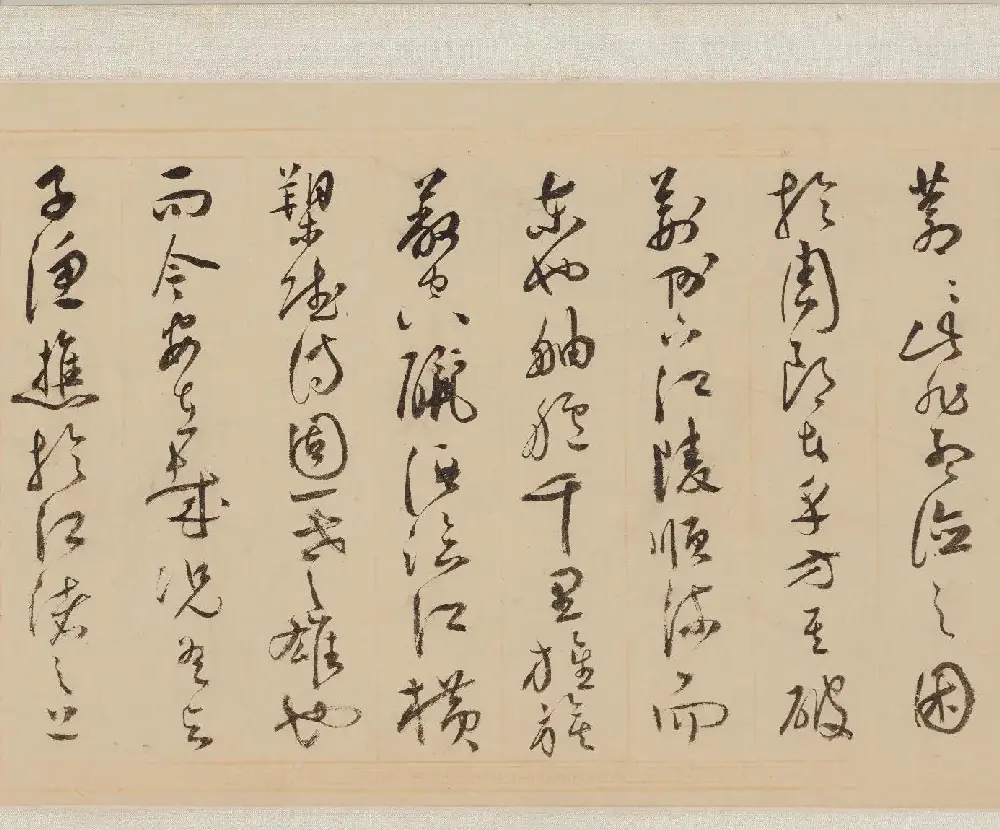 蒼〻此非孟德之困
於周郎者乎方其破
荊州下江陵順流而
東也舳艫千里旌旗
蔽空釃酒臨江橫
槊賦詩固一世之雄也
而今安在哉況吾與
子漁樵於江渚之上